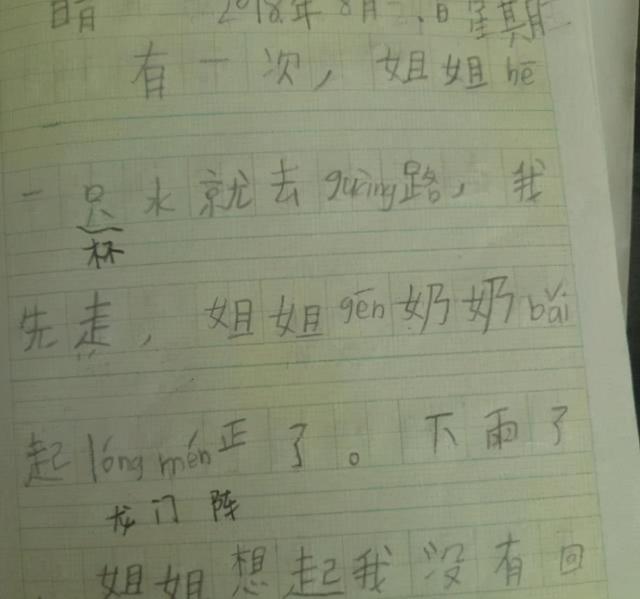 晴 2018年8月 日星期
有一次，姐姐hē
一只水就去guàng路，我
杯
先走，姐姐gēn奶奶bǎi
起lóng mén正了。下雨了
龙门阵
姐姐想起我没有回